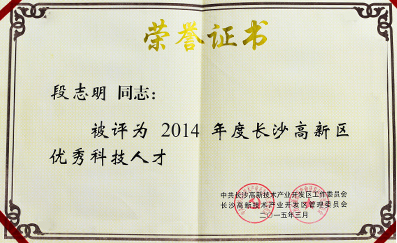 荣誉证书
段志明 同志：
被评为 2014 年度长沙高新区
优秀科技人才
中共长沙高新技术产业开发区工作委员会
长沙高新技术产业开发区管理委员会
二〇一五年三月